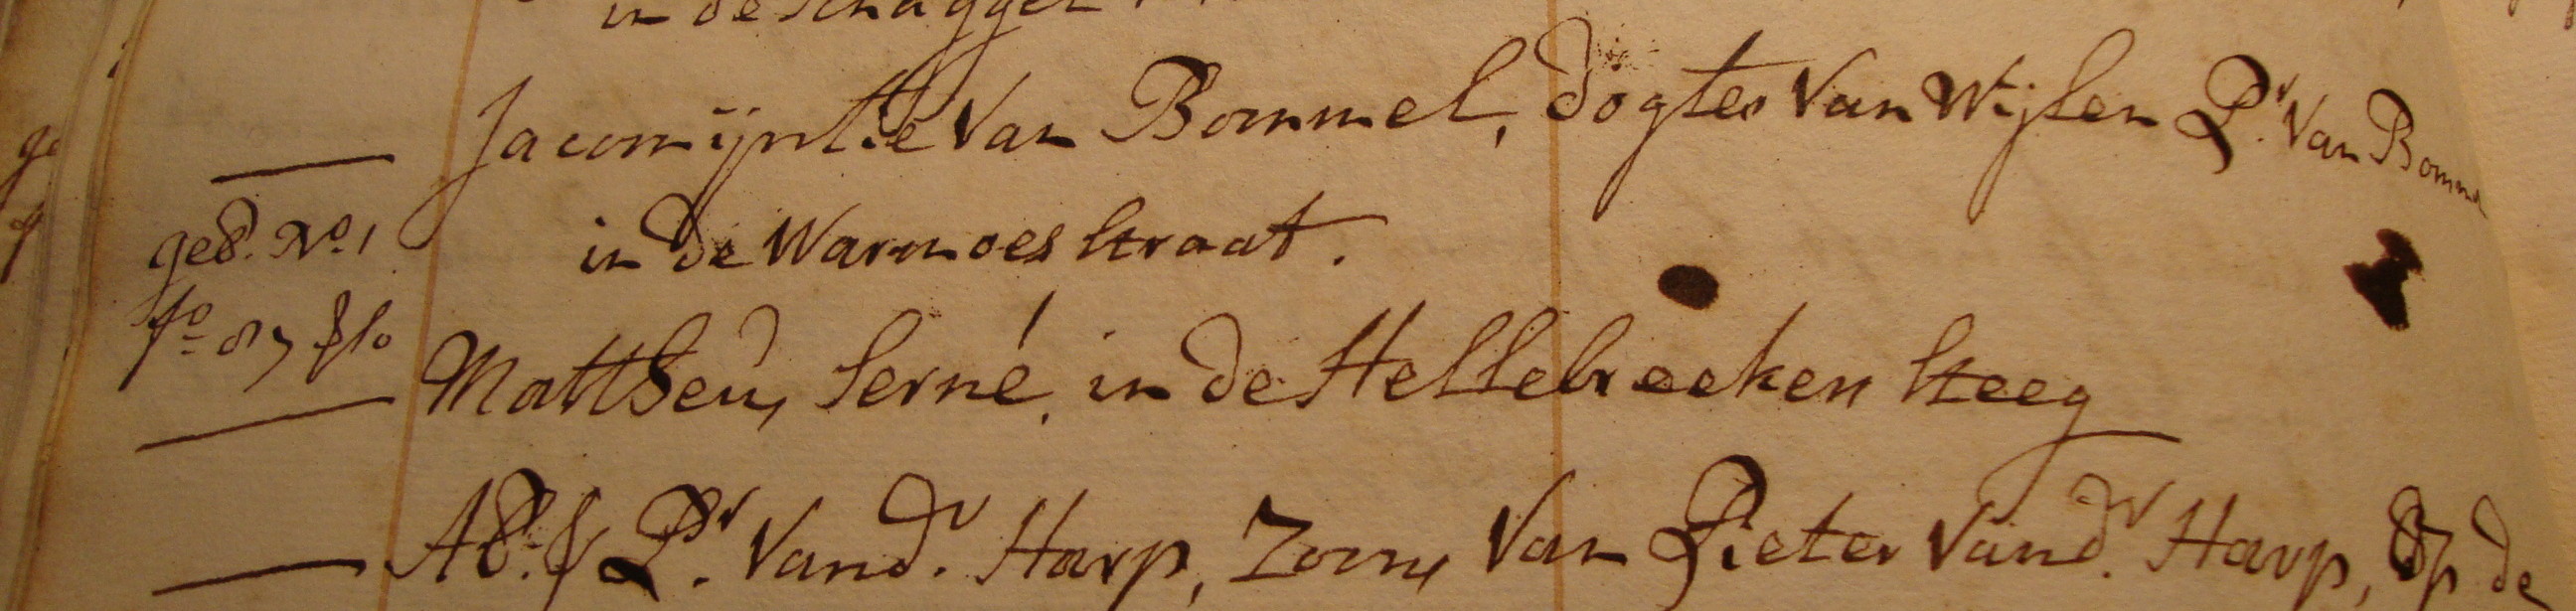 in de Schagger
Jacomijntie van Bommel, dogter van Wijlen Pr. van Bommel
in de Warmoes straat.
geb. No. 1
fo
Mattheus Serné, in de Hellebreeken steeg
Ab. & Pr. vand. Harp, Zoon van Pieter vand. Harp, Op de